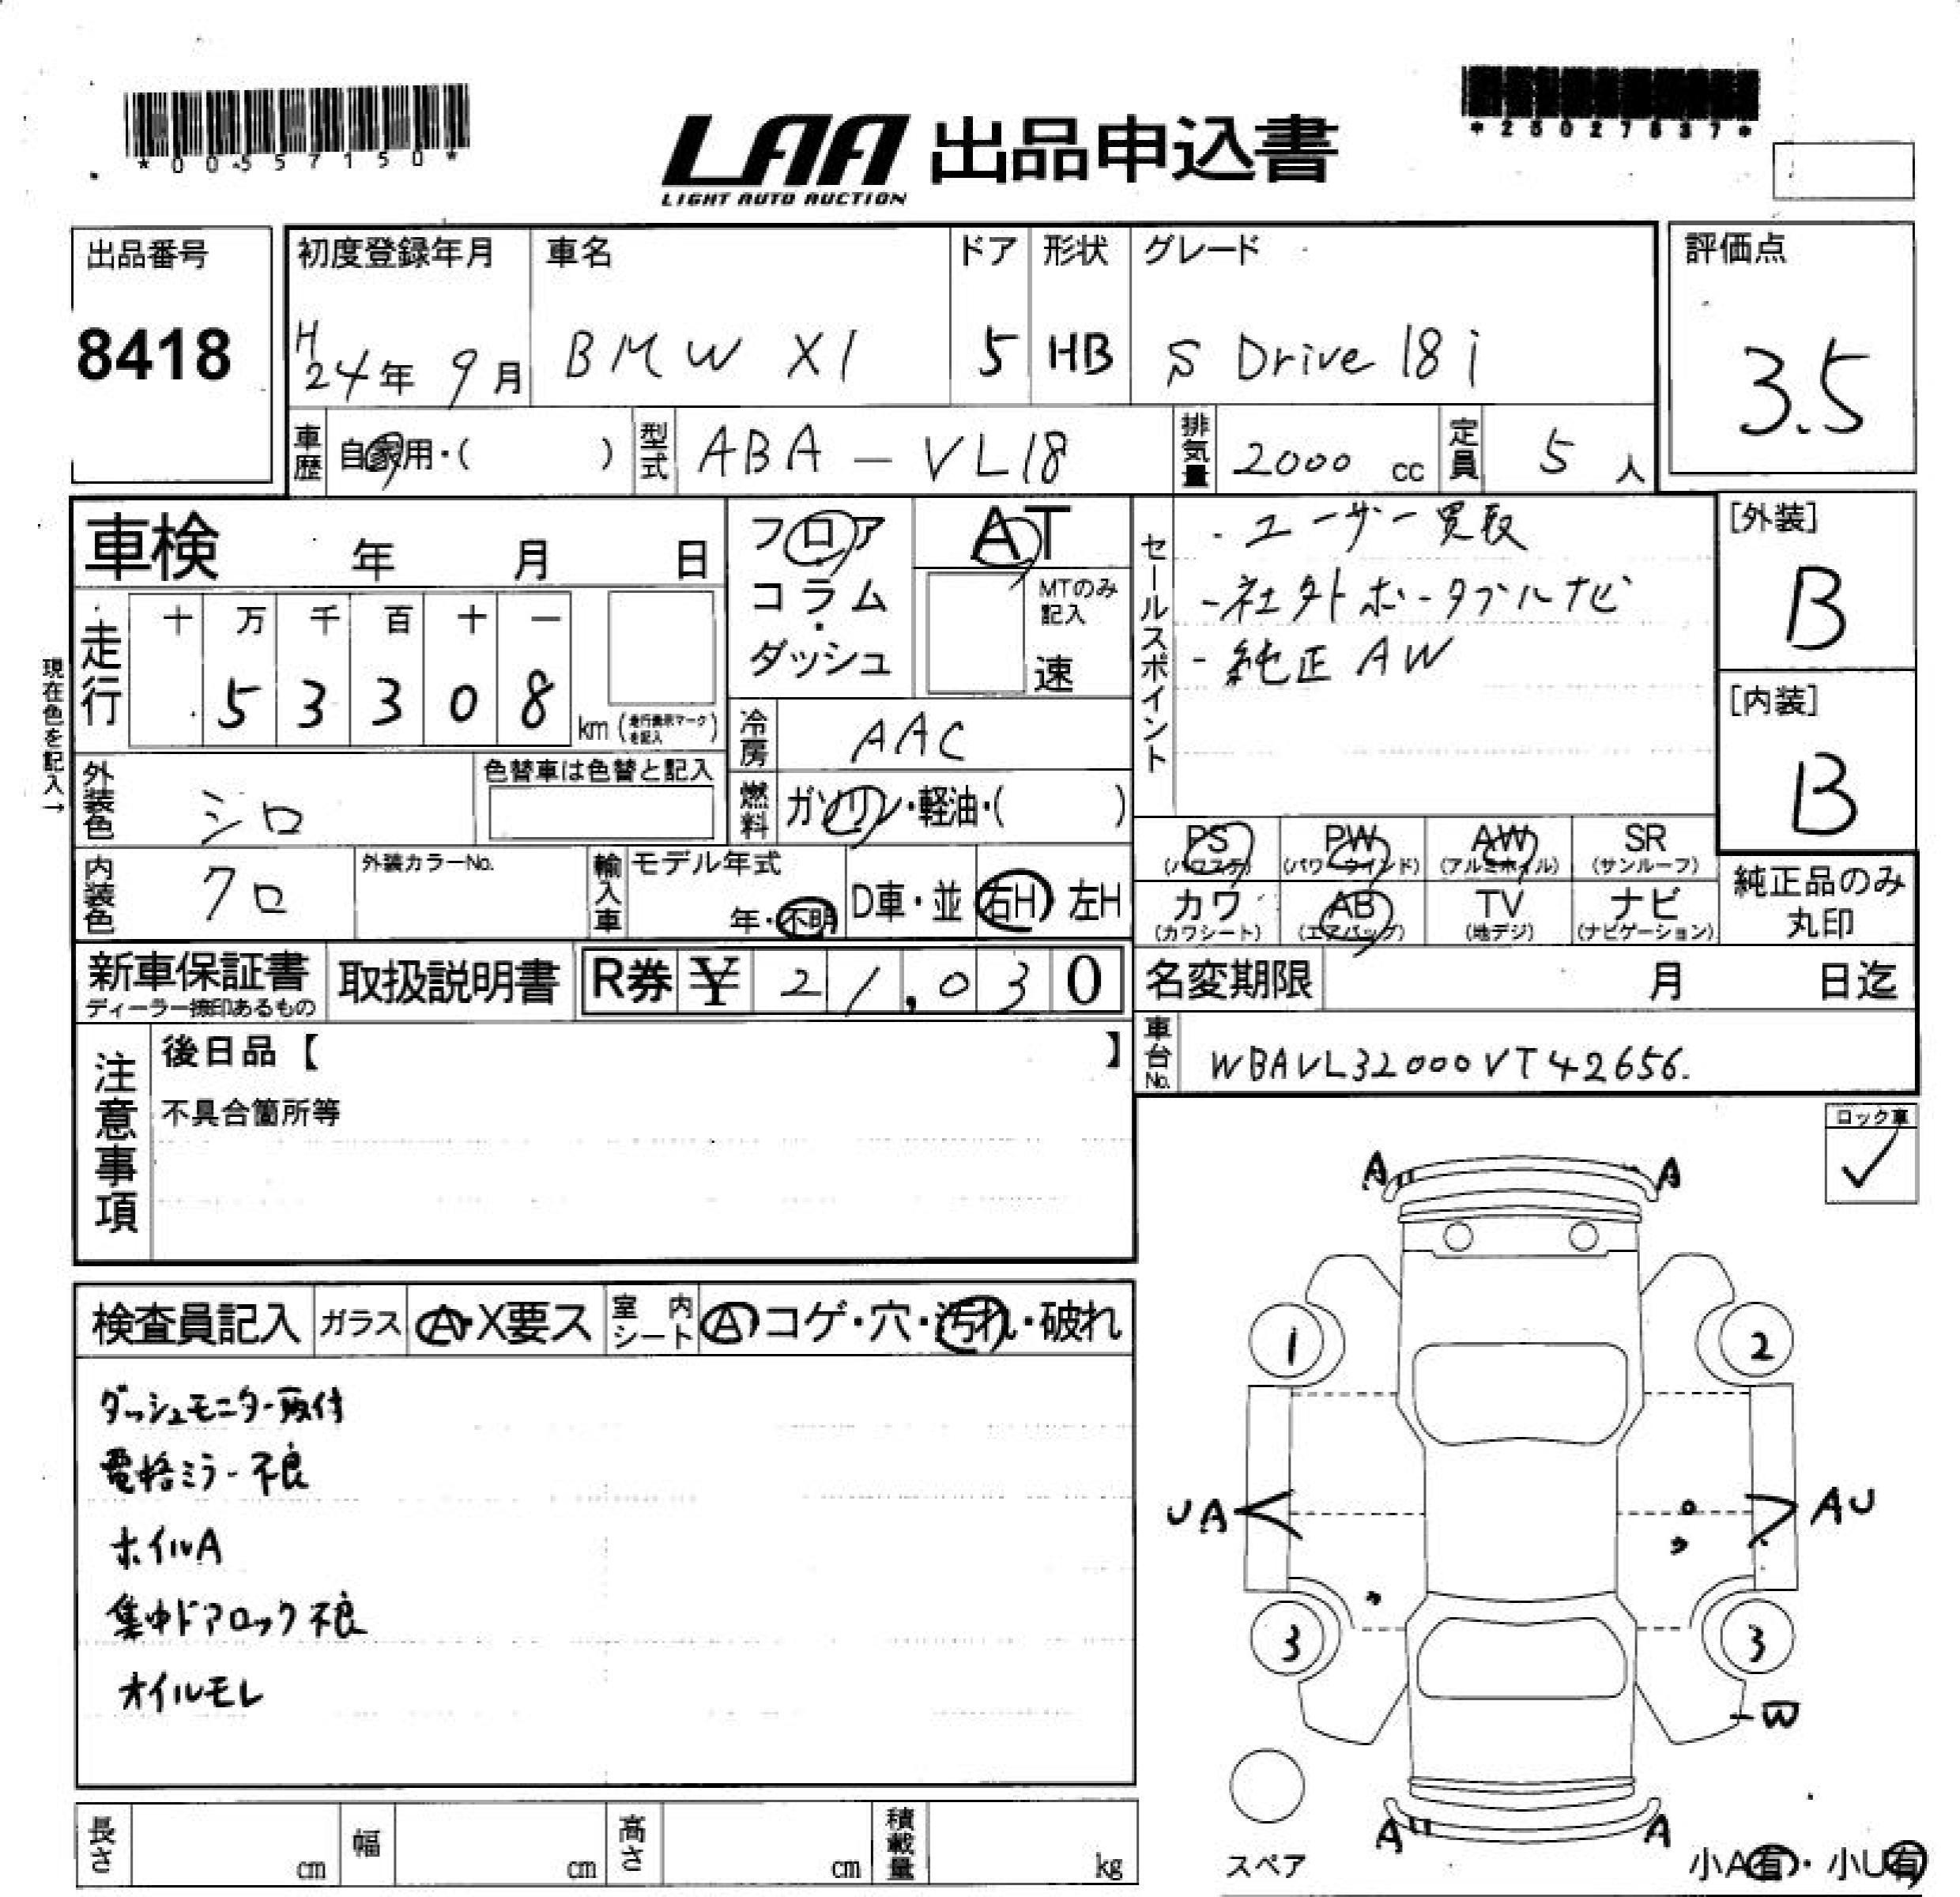 *00557150*
*25027537*
LAA 出品申込書
LIGHT AUTO AUCTION
出品番号
8418
初度登録年月
H24年 9月
車名
BMW X1
ドア
5
形状
HB
グレード
S Drive 18i
評価点
3.5
車歴 自家用・( )
型式 ABA-VL18
排気量 2000 cc
定員 5 人
車検 年 月 日
フロア
コラム・
ダッシュ
AT
MTのみ
記入
速
セールスポイント
・ユーザー買取
-社外ポータブルナビ
-純正AW
[外装]
B
[内装]
B
現在色を記入→
走行
十 万 千 百 十 一
5 3 3 0 8
km (走行表示マークを記入)
冷房 AAC
燃料 ガソリン・軽油・( )
外装色 シロ
色替車は色替と記入
内装色 クロ
外装カラーNo.
輸入車 モデル年式
年・不明
D車・並 右H 左H
PS
(パワステ)
PW
(パワーウインド)
AW
(アルミホイル)
SR
(サンルーフ)
カワ
(カワシート)
AB
(エアバッグ)
TV
(地デジ)
ナビ
(ナビゲーション)
純正品のみ
丸印
新車保証書
ディーラー捺印あるもの
取扱説明書
R券 ¥ 21,030
名変期限 月 日迄
車台No. WBAVL32000VT42656.
注意事項
後日品【 】
不具合箇所等
ロック車
✓
検査員記入
ガラス A・X要ス
室内シート A コゲ・穴・汚れ・破れ
ダッシュモニター取付
電格ミラー不良
ホイルA
集中ドアロック不良
オイルモレ
A A
1 2
UA AU
3 3
W
A A
スペア
小A有・小U有
長さ cm
幅 cm
高さ cm
積載量 kg